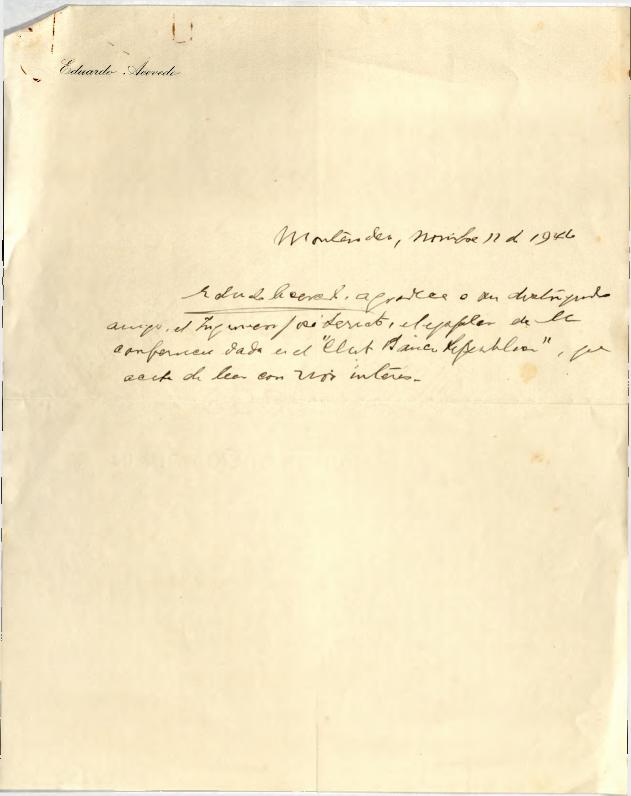 Eduardo Acevedo
Montevideo, Novimbre 11 de 1946
Eduardo Acevedo, agradece a su distinguido
amigo, el Ingeniero José Serrato, el ejemplar de la
conferencia dada en el "Club Banco República", que
acaba de leer con vivo interés.